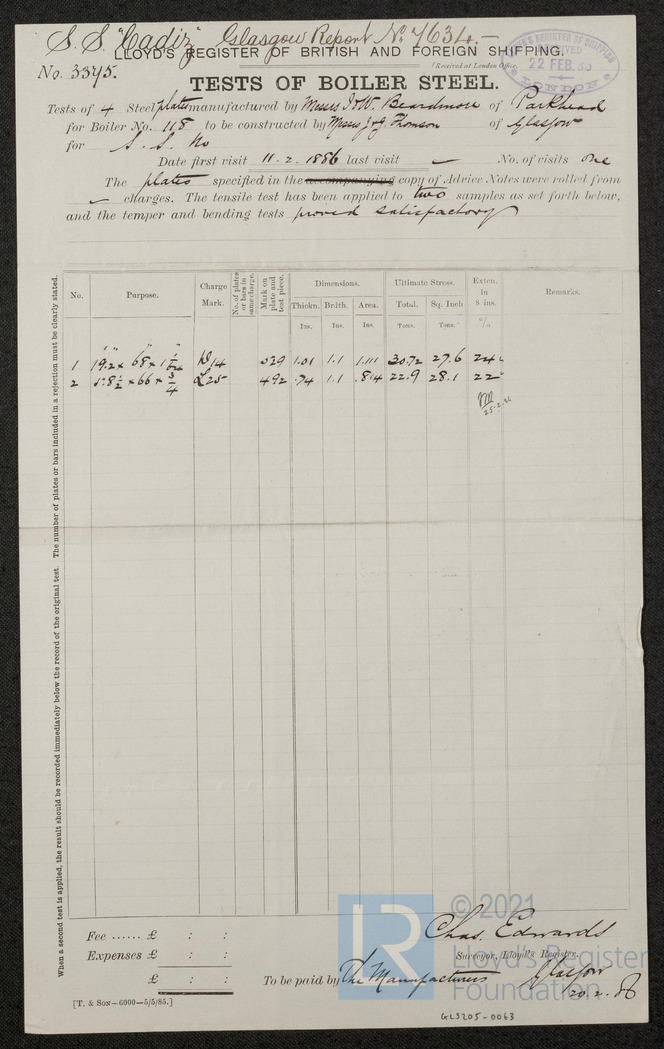 S.S. "Cadiz" Glasgow Report No. 7634.-
LLOYD'S REGISTER OF BRITISH AND FOREIGN SHIPPING.
No. 3375. (Received at London Office
LLOYD'S REGISTER OF SHIPPING RECEIVED 22 FEB. 86 LONDON
TESTS OF BOILER STEEL.
Tests of 4 Steel plates manufactured by Messrs I & W. Beardmore of Parkhead
for Boiler No. 118 to be constructed by Messrs J & G. Thomson of Glasgow
for S. S. No
Date first visit 11.2.1886 last visit No. of visits one
The plates specified in the accompanying copy of Advice Notes were rolled from
charges. The tensile test has been applied to two samples as set forth below,
and the temper and bending tests proved satisfactory
No. Purpose. Charge Mark. No. of plates or bars in same charge. Mark on plate and test piece. Dimensions. Ultimate Stress. Exten. in 8 ins. Remarks.
Thickn. Br'dth. Area. Total. Sq. Inch
Ins. Ins. Ins. Tons. Tons. %
1 19.2 × 68 × 1 14 029 1.01 1.1 1.111 30.72 27.6 24
2 × 66 × 3/4 L25 492 .74 1.1 .814 22.9 28.1 22
25.2.86
When a second test is applied, the result should be recorded immediately below the record of the original test. The number of plates or bars included in a rejection must be clearly stated.
Fee ...... £ : :
Expenses £ : :
£ : :
Chas. Edwards
Surveyor, Lloyd's Register.
To be paid by The Manufacturers Glasgow
20.2.86
[T. & SON—6000—5/5/85.]
GLS205-0063
LR
© 2021
Lloyd's Register
Foundation